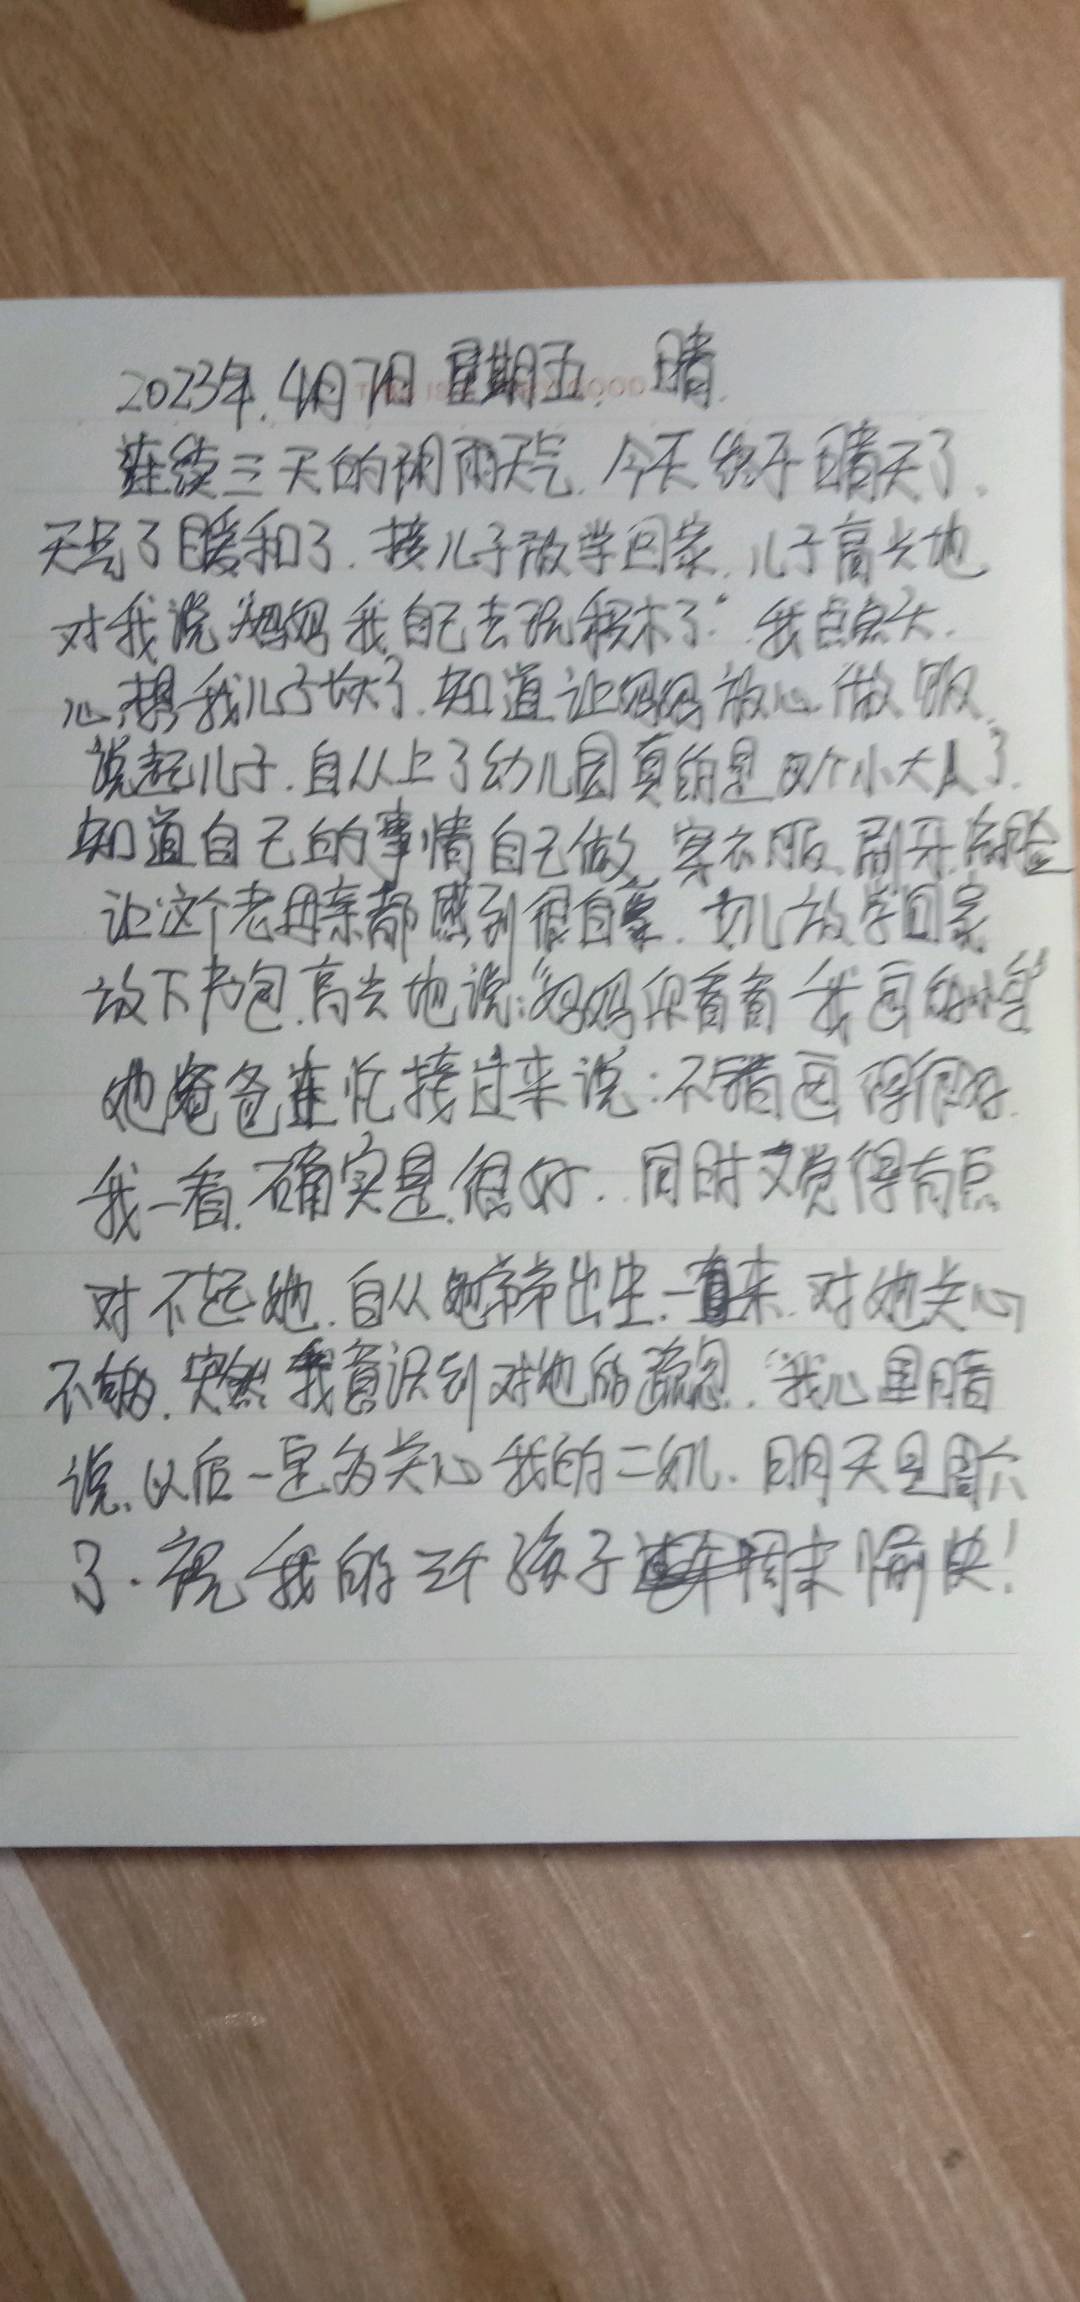 2023年.4月7日 星期五. 晴.
连续三天的阴雨天气.今天终于晴天了.
天气了暖和了.接儿子放学回家.儿子高兴地
对我说"妈妈我自己去玩积木了".我点点头.
心想我儿子长大了.知道让妈妈放心做饭.
说起儿子.自从上了幼儿园真的是个小大人了.
知道自己的事情自己做.穿衣服.刷牙.洗脸
让这个老母亲都感到很自豪.女儿放学回家
放下书包.高兴地说:"妈妈你看看我画的
她爸爸连忙接过来说:不错画得很好.
我一看.确实是很好..同时又觉得有点
对不起她.自从她弟弟出生.一直来.对她关心
不够.突然我意识到对她的疏忽..我心里暗
说.以后一定多关心我的二妞.明天是周六
了.祝我的三个孩子周末愉快!